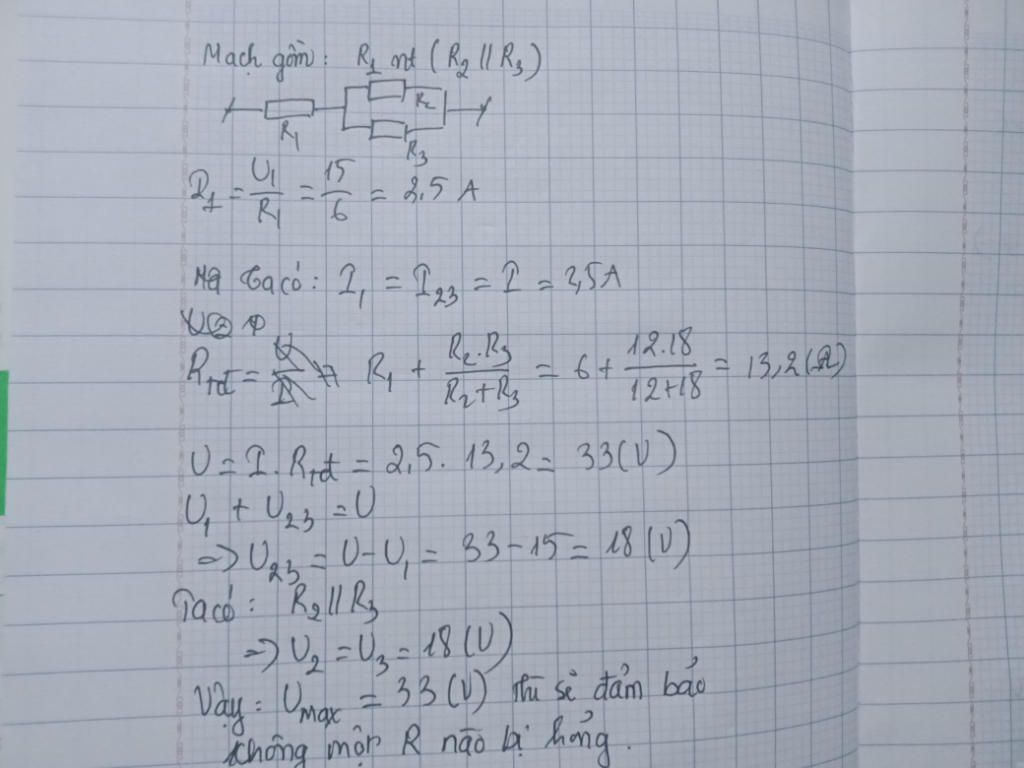 Mạch gồm: R₁ nt (R₂ // R₃)
R₂
R₁
R₃
I₁ = U₁/R₁ = 15/6 = 2,5 A
Ta có: I₁ = I₂₃ = I = 2,5A
Rtđ = R₁ + R₂.R₃/R₂+R₃ = 6 + 12.18/12+18 = 13,2 (Ω)
U = I. Rtđ = 2,5. 13,2 = 33(V)
U₁ + U₂₃ = U
=> U₂₃ = U - U₁ = 33 - 15 = 18 (V)
Ta có: R₂ // R₃
=> U₂ = U₃ = 18 (V)
Vậy: Umax = 33 (V) thì sẽ đảm bảo
không một R nào bị hỏng.